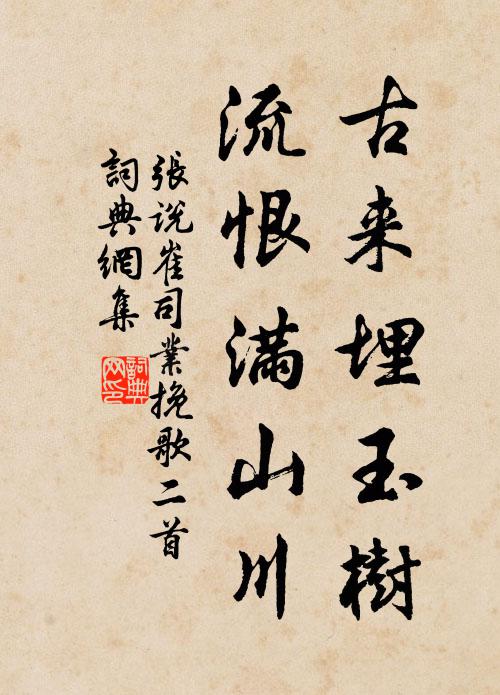 古来埋玉樹
流恨满山川
張说崔司業挽歌二首
詞典網集
詞典网印